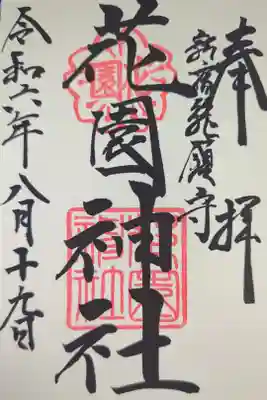 奉拝
新宿総鎮守
花園神社
令和六年八月十九日